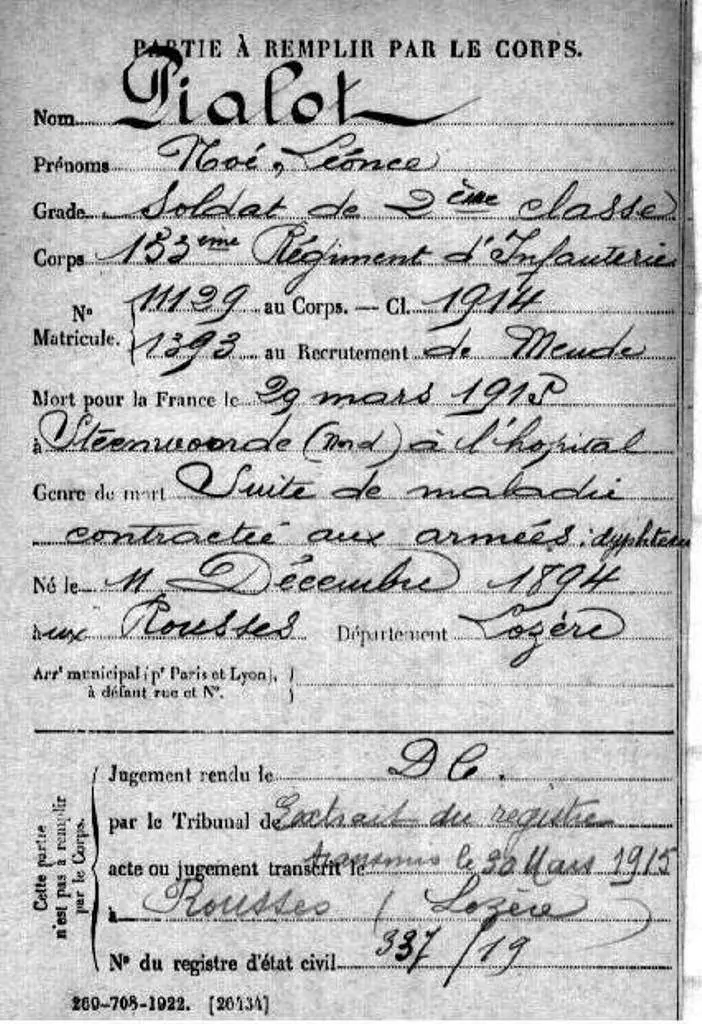 PARTIE À REMPLIR PAR LE CORPS.
Nom Pialot
Prénoms Noé, Léonce
Grade Soldat de 2ème classe
Corps 153eme Régiment d'Infanterie
N° Matricule. 11129 au Corps. — Cl. 1914
1393 au Recrutement de Mende
Mort pour la France le 29 mars 1915
à Steenwoorde (Nord) à l'hopital
Genre de mort Suite de maladie
contractée aux armées : dyphterie
Né le 11 Décembre 1894
aux Rousses Département Lozère
Arrt municipal (pr Paris et Lyon),
à défaut rue et N°.
Cette partie n'est pas à remplir par le Corps.
Jugement rendu le D C.
par le Tribunal de Extrait du registre
acte ou jugement transcrit le transmis le 30 Mars 1915
à Rousses (Lozère)
N° du registre d'état civil 337/19
269-708-1922. [26434]